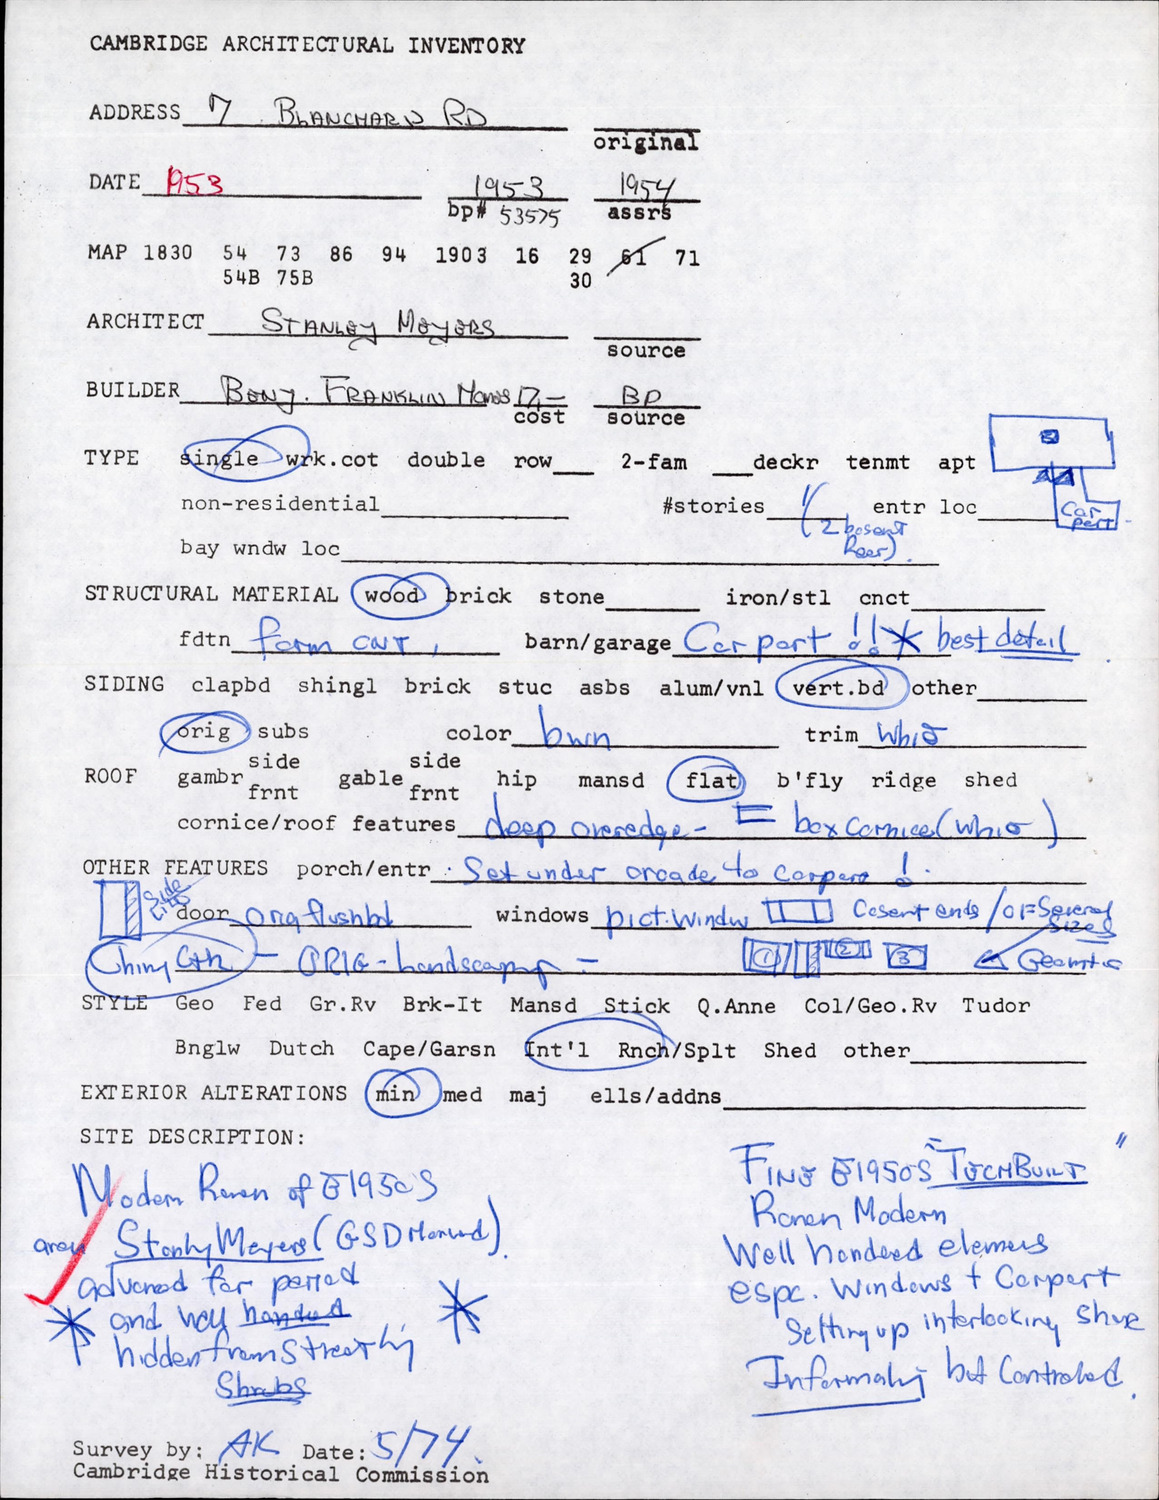 CAMBRIDGE ARCHITECTURAL INVENTORY
ADDRESS 7 BLANCHARD RD
original
DATE 1953 1953 1954
bp# 53575 assrs
MAP 1830 54 73 86 94 1903 16 29 61 71
54B 75B 30
ARCHITECT STANLEY MEYERS
source
BUILDER BENJ. FRANKLIN Homes 17,– BP
cost source
TYPE single wrk.cot double row 2-fam deckr tenmt apt
non-residential #stories 1 entr loc Car port
(2 basemt Rear)
bay wndw loc
STRUCTURAL MATERIAL wood brick stone iron/stl cnct
fdtn CNT, barn/garage Car port !! * best detail
SIDING clapbd shingl brick stuc asbs alum/vnl vert.bd other
orig subs color bwn trim white
side side
ROOF gambr gable hip mansd flat b'fly ridge shed
frnt frnt
cornice/roof features deep overedge - box cornice (white)
OTHER FEATURES porch/entr Set under arcade to carport !
side lite
door orig flushbd windows pict. window Casemt ends / or = Several sizes
Chimy Ctr - ORIG - landscaping - 1 2 3 Geometric
STYLE Geo Fed Gr.Rv Brk-It Mansd Stick Q.Anne Col/Geo.Rv Tudor
Bnglw Dutch Cape/Garsn Int'l Rnch/Splt Shed other
EXTERIOR ALTERATIONS min med maj ells/addns
SITE DESCRIPTION:
Modern Ranch of E1950S
Stanley Meyers (GSD Harvard).
advanced for period
* and well handled *
hidden from Street by
Shrubs
FINE E1950S "TECHBUILT"
Ranch Modern
Well handled elements
espc. Windows + Carport
Setting up interlocking
Informality but Controlled.
Survey by: AK Date: 5/74.
Cambridge Historical Commission